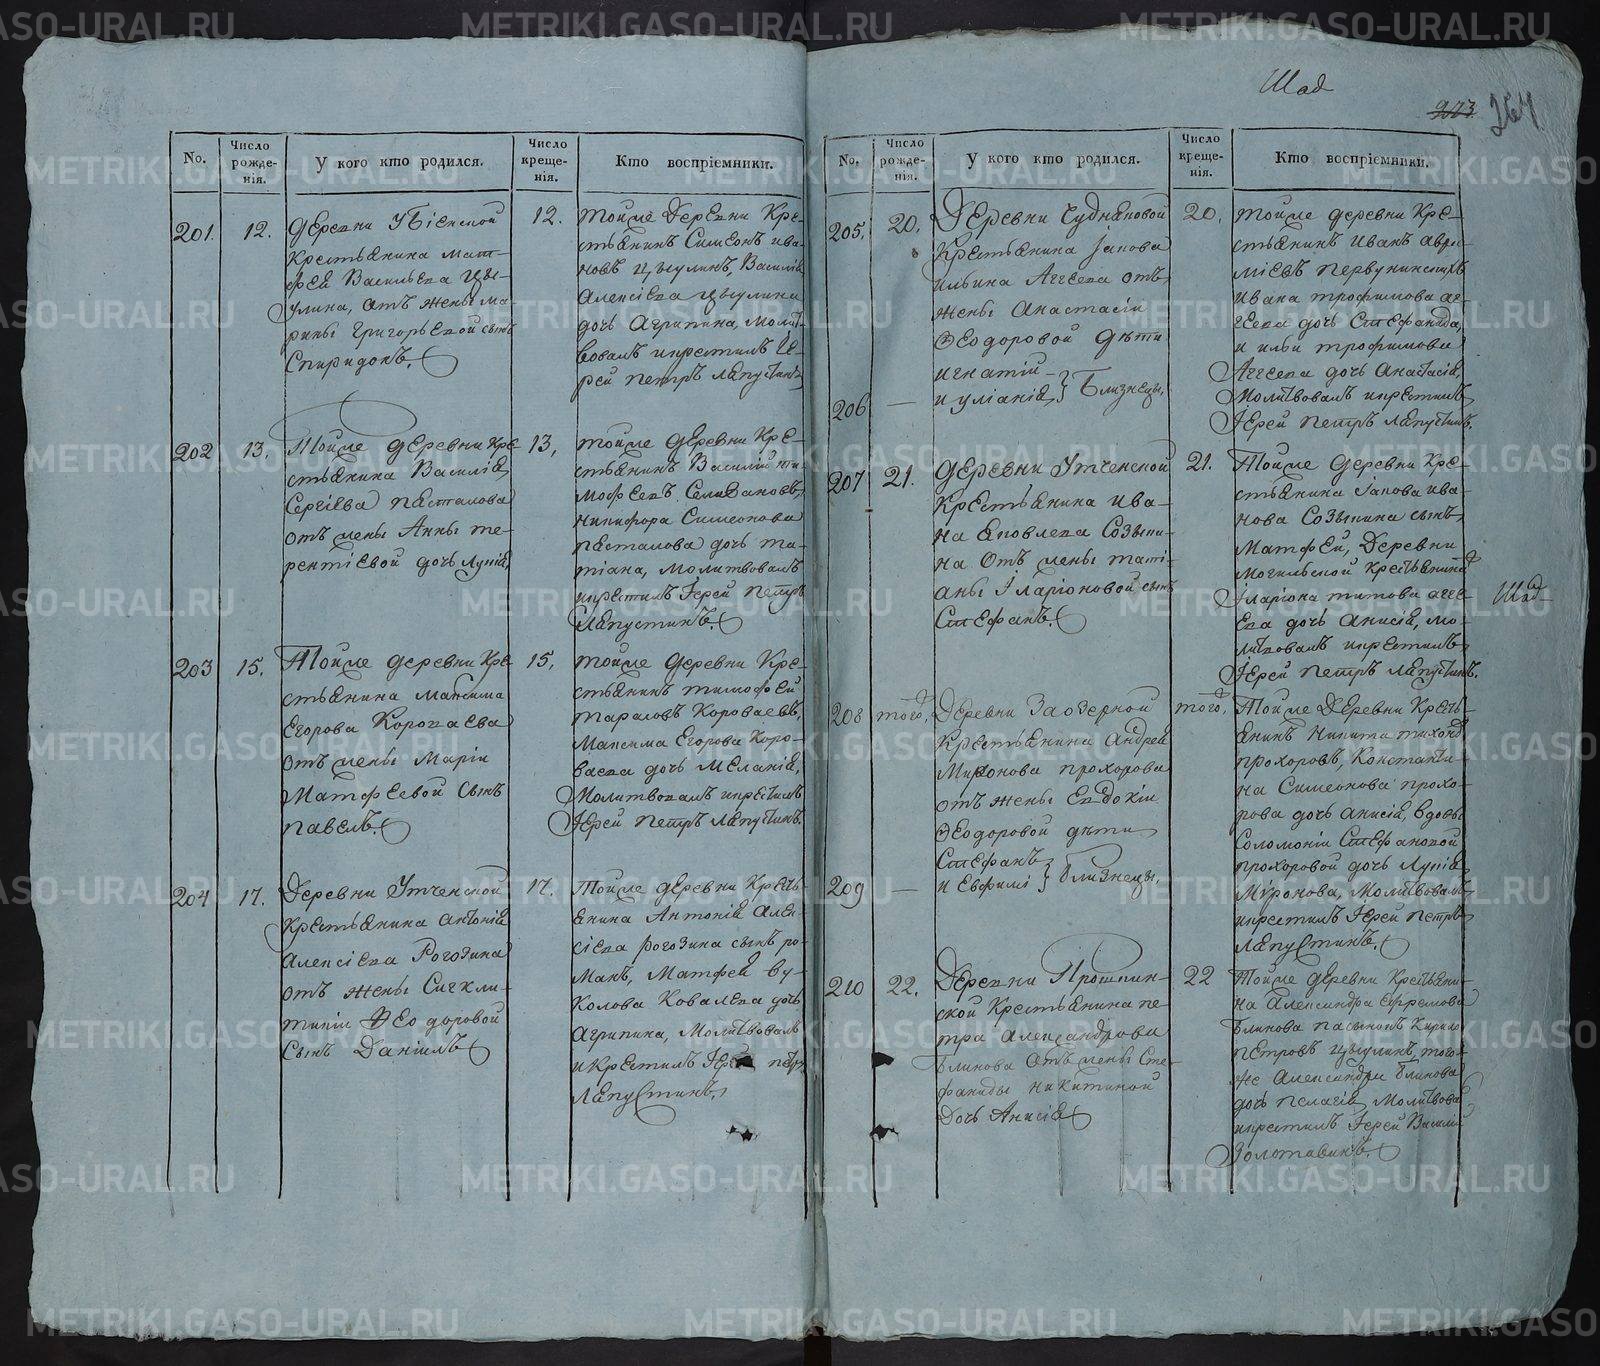 Шад
223 264
No.
Число рожде-нія.
У кого кто родился.
Число креще-нія.
Кто воспріемники.
201. 12.
Деревни Убіенской
крестьянина Мат-
фея Васильева Цы-
улина, отъ жены Ма-
рины Григорьевой сынъ
Спиридонъ.
12.
тойже деревни Кре-
стьянинъ Симеонъ ива-
новъ Цыулинъ, Василія
Алексіева Цыулина
дочь Агрипина, молит-
вовалъ икрестилъ Іе-
рей петръ Лапустинъ
202 13.
Тойже деревни Кре-
стьянина Василія
Сергіева пасталова
отъ жены Анны те-
рентіевой дочь Лупія,
13,
тойже деревни Кре-
стьянинъ Василій ти-
мофеевъ Селивановъ,
никифора Симеонова
пасталова дочь та-
тіана, молитвовалъ
икрестилъ Іерей петръ
Лапустинъ.
203 15.
Тойже деревни Кре-
стьянина Максима
Егорова Короваева
отъ жены Маріи
Матфеевой сынъ
павелъ.
15,
тойже деревни Кре-
стьянинъ тимофей
Тарасовъ Короваевъ,
Максима Егорова Коро-
ваева дочь Меланія,
Молитвовалъ икрестилъ
Іерей петръ Лапустинъ.
204 17.
Деревни Утченской
крестьянина антонія
алексіева Рогозина
отъ жены Сигкли-
тикіи Феодоровой
сынъ Даніилъ
17.
тойже деревни Кресть-
янина Антонія Алек-
сіева рогозина сынъ ро-
манъ, Матфея Ву-
колова Ковалева дочь
Агрипина, молитвовалъ
икрестилъ Іерей петръ
Лапустинъ,
No.
Число рожде-нія.
У кого кто родился.
Число креще-нія.
Кто воспріемники.
205. 20.
Деревни Чудняковой
Крестьянина Іакова
ильина Аггеева отъ
жены Анастасіи
Ѳеодоровой дѣти
игнатій
206 —
и уліанія, } Близнецы,
20.
тойже деревни Кре-
стьянинъ иванъ авра-
міевъ первунинскихъ
ивана трофимова аг-
геева дочь Стефанида,
и ильи трофимова
Аггеева дочь Анастасія,
Молитвовалъ икрестилъ
Іерей Петръ Лапустинъ.
207 21.
Деревни Утченской
Крестьянина ива-
на яковлева Созыки-
на отъ жены тати-
аны Іларіоновой сынъ
Стефанъ.
21.
Тойже деревни Кре-
стьянина Іакова ива-
нова Созыкина сынъ
Матфей, Деревни
Могильской крестьянина
Іларіона титова агге-
ева дочь Анисія, мо-
литвовалъ икрестилъ
Іерей петръ Лапустинъ.
Шад
208 того,
Деревни Заозерной
Крестьянина андрея
Миронова прохорова
отъ жены Евдокіи
Ѳеодоровой дѣти
Стефанъ
209 —
и Евфимі } близнецы,
того,
Тойже Деревни Кресть-
янинъ никита тихоновъ
прохоровъ, Константи-
на Симеонова прохо-
рова дочь анисія, вдовы
Соломоніи Стефановой
прохоровой дочь Лупія
Миронова, Молитвовалъ
икрестилъ Іерей петръ
Лапустинъ.
210 22.
Деревни Прошкин-
ской Крестьянина пе-
тра александрова
блинова отъ жены Сте-
фаниды никитиной
дочь Анисія
22
Тойже деревни Крестьяни-
на Александра ефремова
блинова пасынокъ Кирило
петровъ Цыулинъ, того-
же Александра блинова
дочь пелагія, молитвовалъ
икрестилъ Іерей Василій
Золотавинъ.